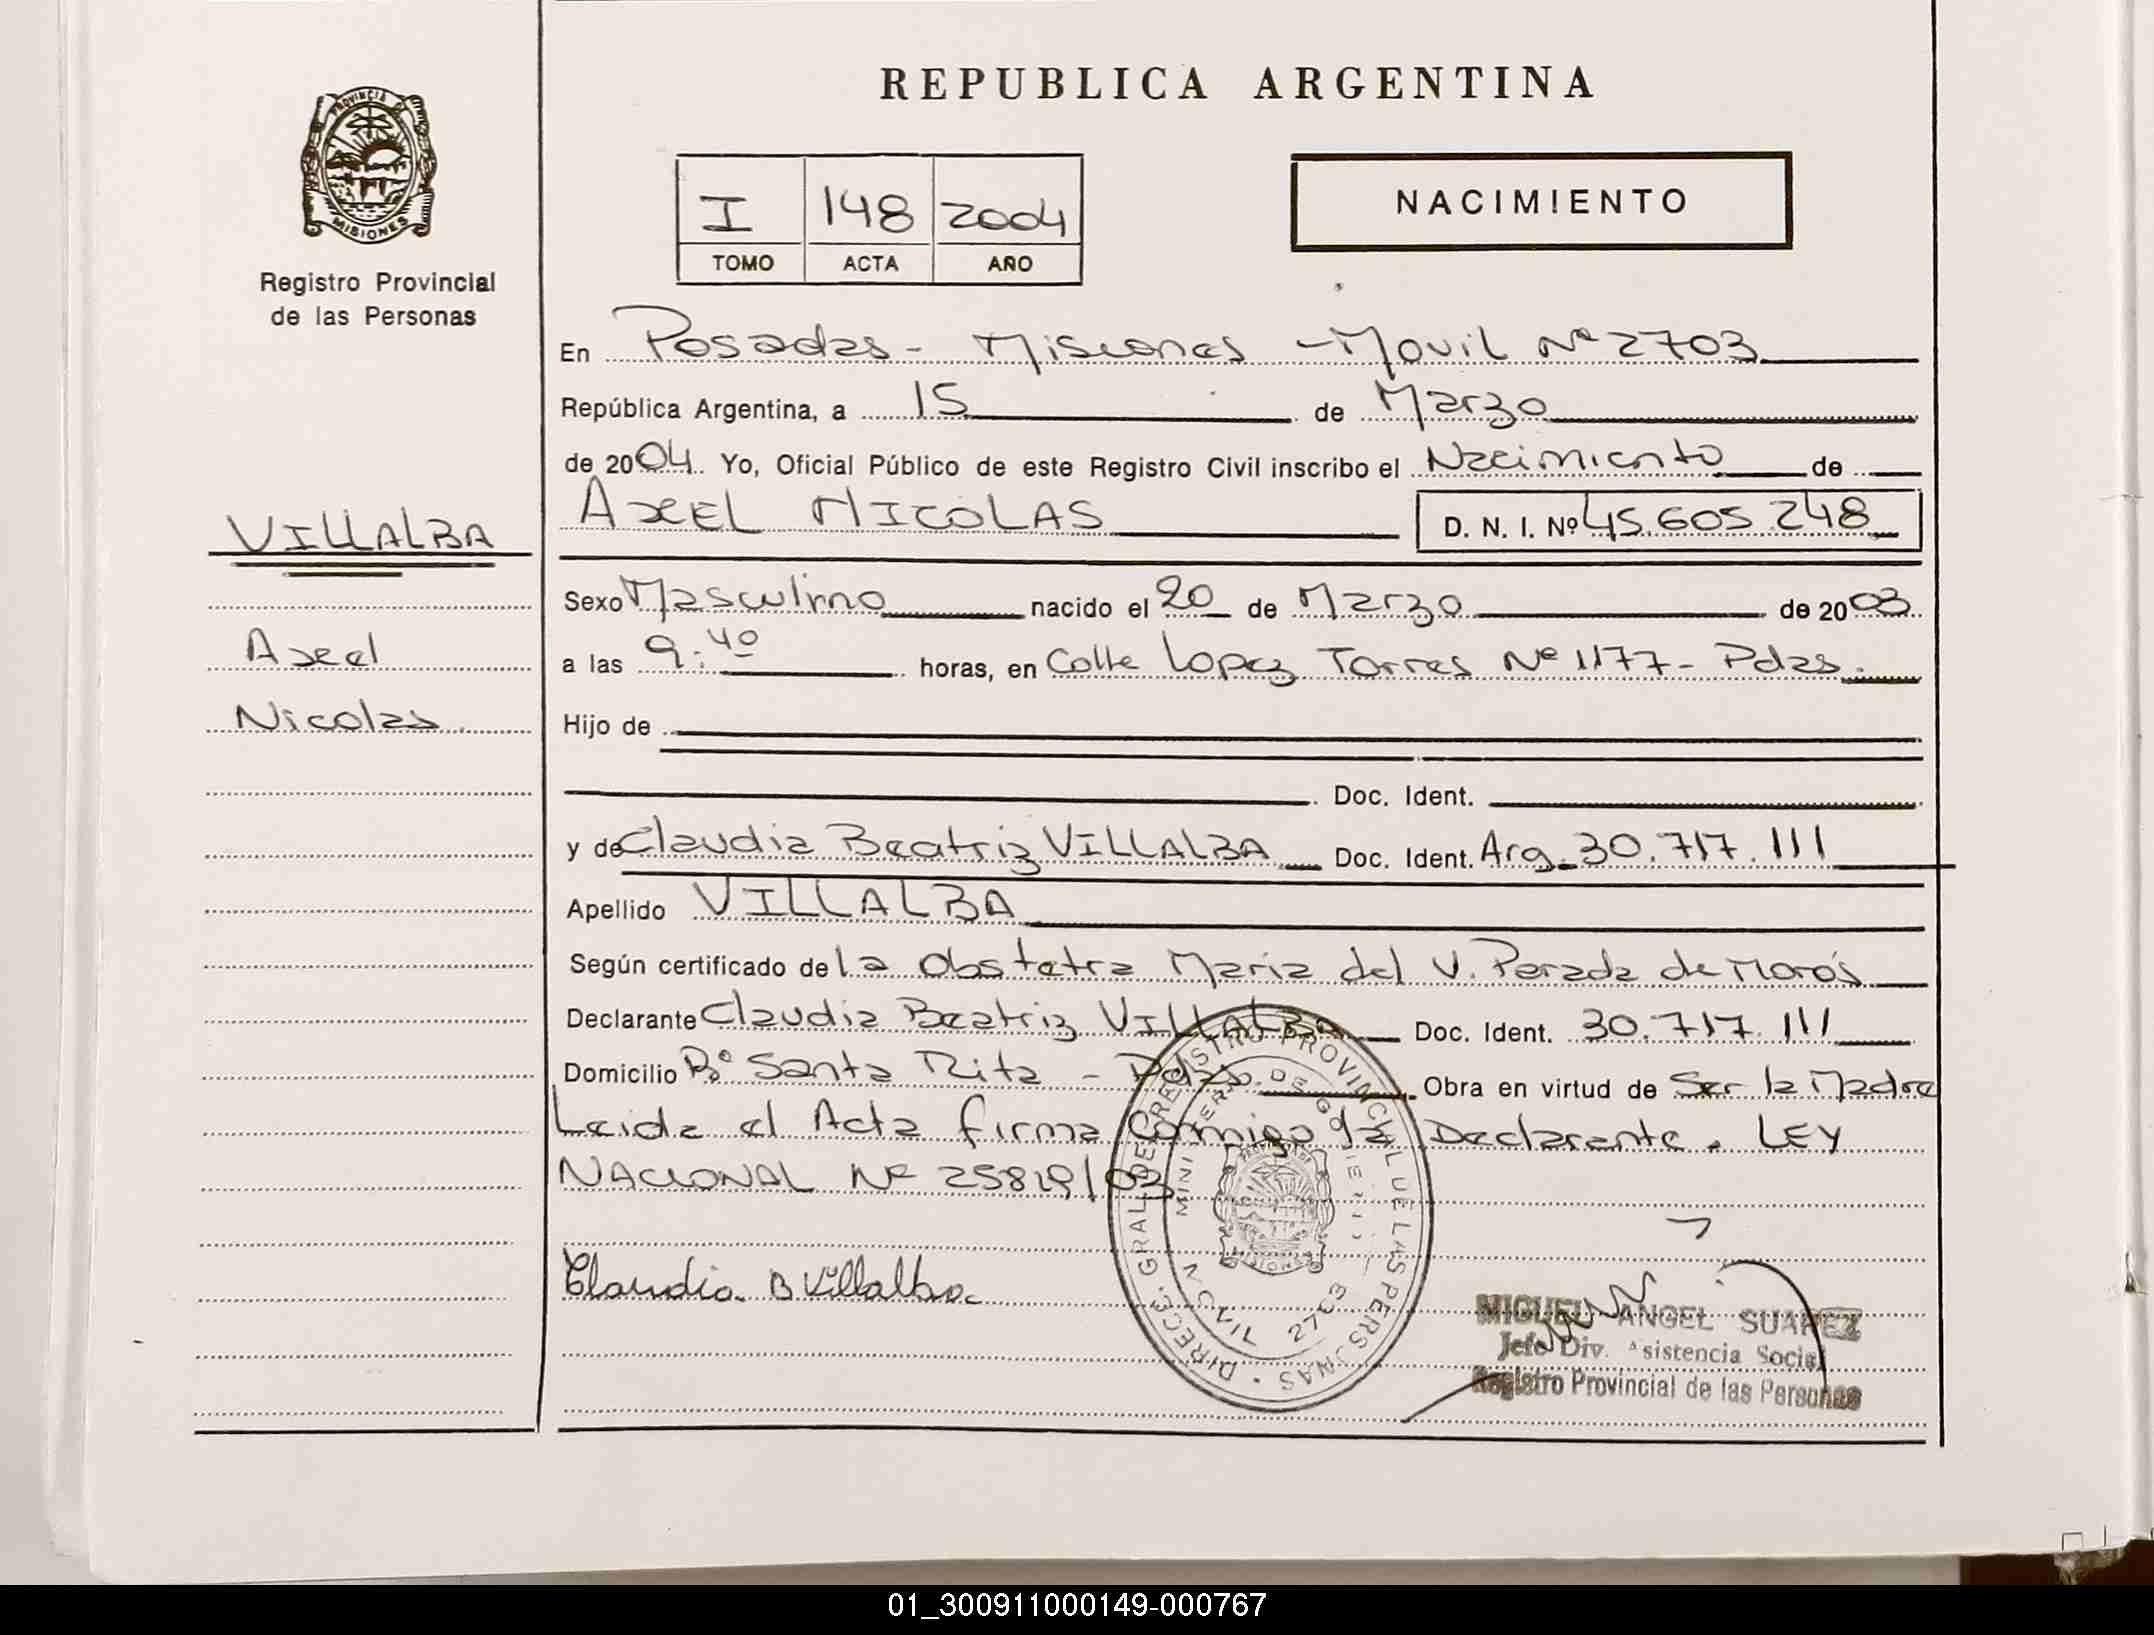 REPUBLICA ARGENTINA
PROVINCIA DE MISIONES
Registro Provincial
de las Personas
I 148 2004
TOMO ACTA AÑO
NACIMIENTO
En Posadas - Misiones - Movil Nº 2703
República Argentina, a 15 de Marzo
de 2004. Yo, Oficial Público de este Registro Civil inscribo el Nacimiento de
AxEL NICOLAS D. N. I. Nº 45.605.248
VILLALBA
Axel
Nicolas
Sexo Masculino nacido el 20 de Marzo de 2003
a las 9:40 horas, en Calle Lopez Torres Nº 1177 - Pdas.
Hijo de
Doc. Ident.
y de Claudia Beatriz VILLALBA Doc. Ident. Arg. 30.717.111
Apellido VILLALBA
Según certificado de la Obstetra Maria del V. Parada de
Declarante Claudia Beatriz VILLALBA Doc. Ident. 30.717.111
Domicilio Bº Santa Rita - Pdas. Obra en virtud de Ser la Madre
Leida el Acta firma Conmigo la Declarante. LEY
NACIONAL Nº 25819/03
Claudia B Villalba
DIRECC. GRAL. DE REGISTRO PROVINCIAL DE LAS PERSONAS
MINISTERIO DE GOBIERNO
MOVIL 2703
MIGUEL ANGEL SUAREZ
Jefe Div. Asistencia Social
Registro Provincial de las Personas
01_300911000149-000767